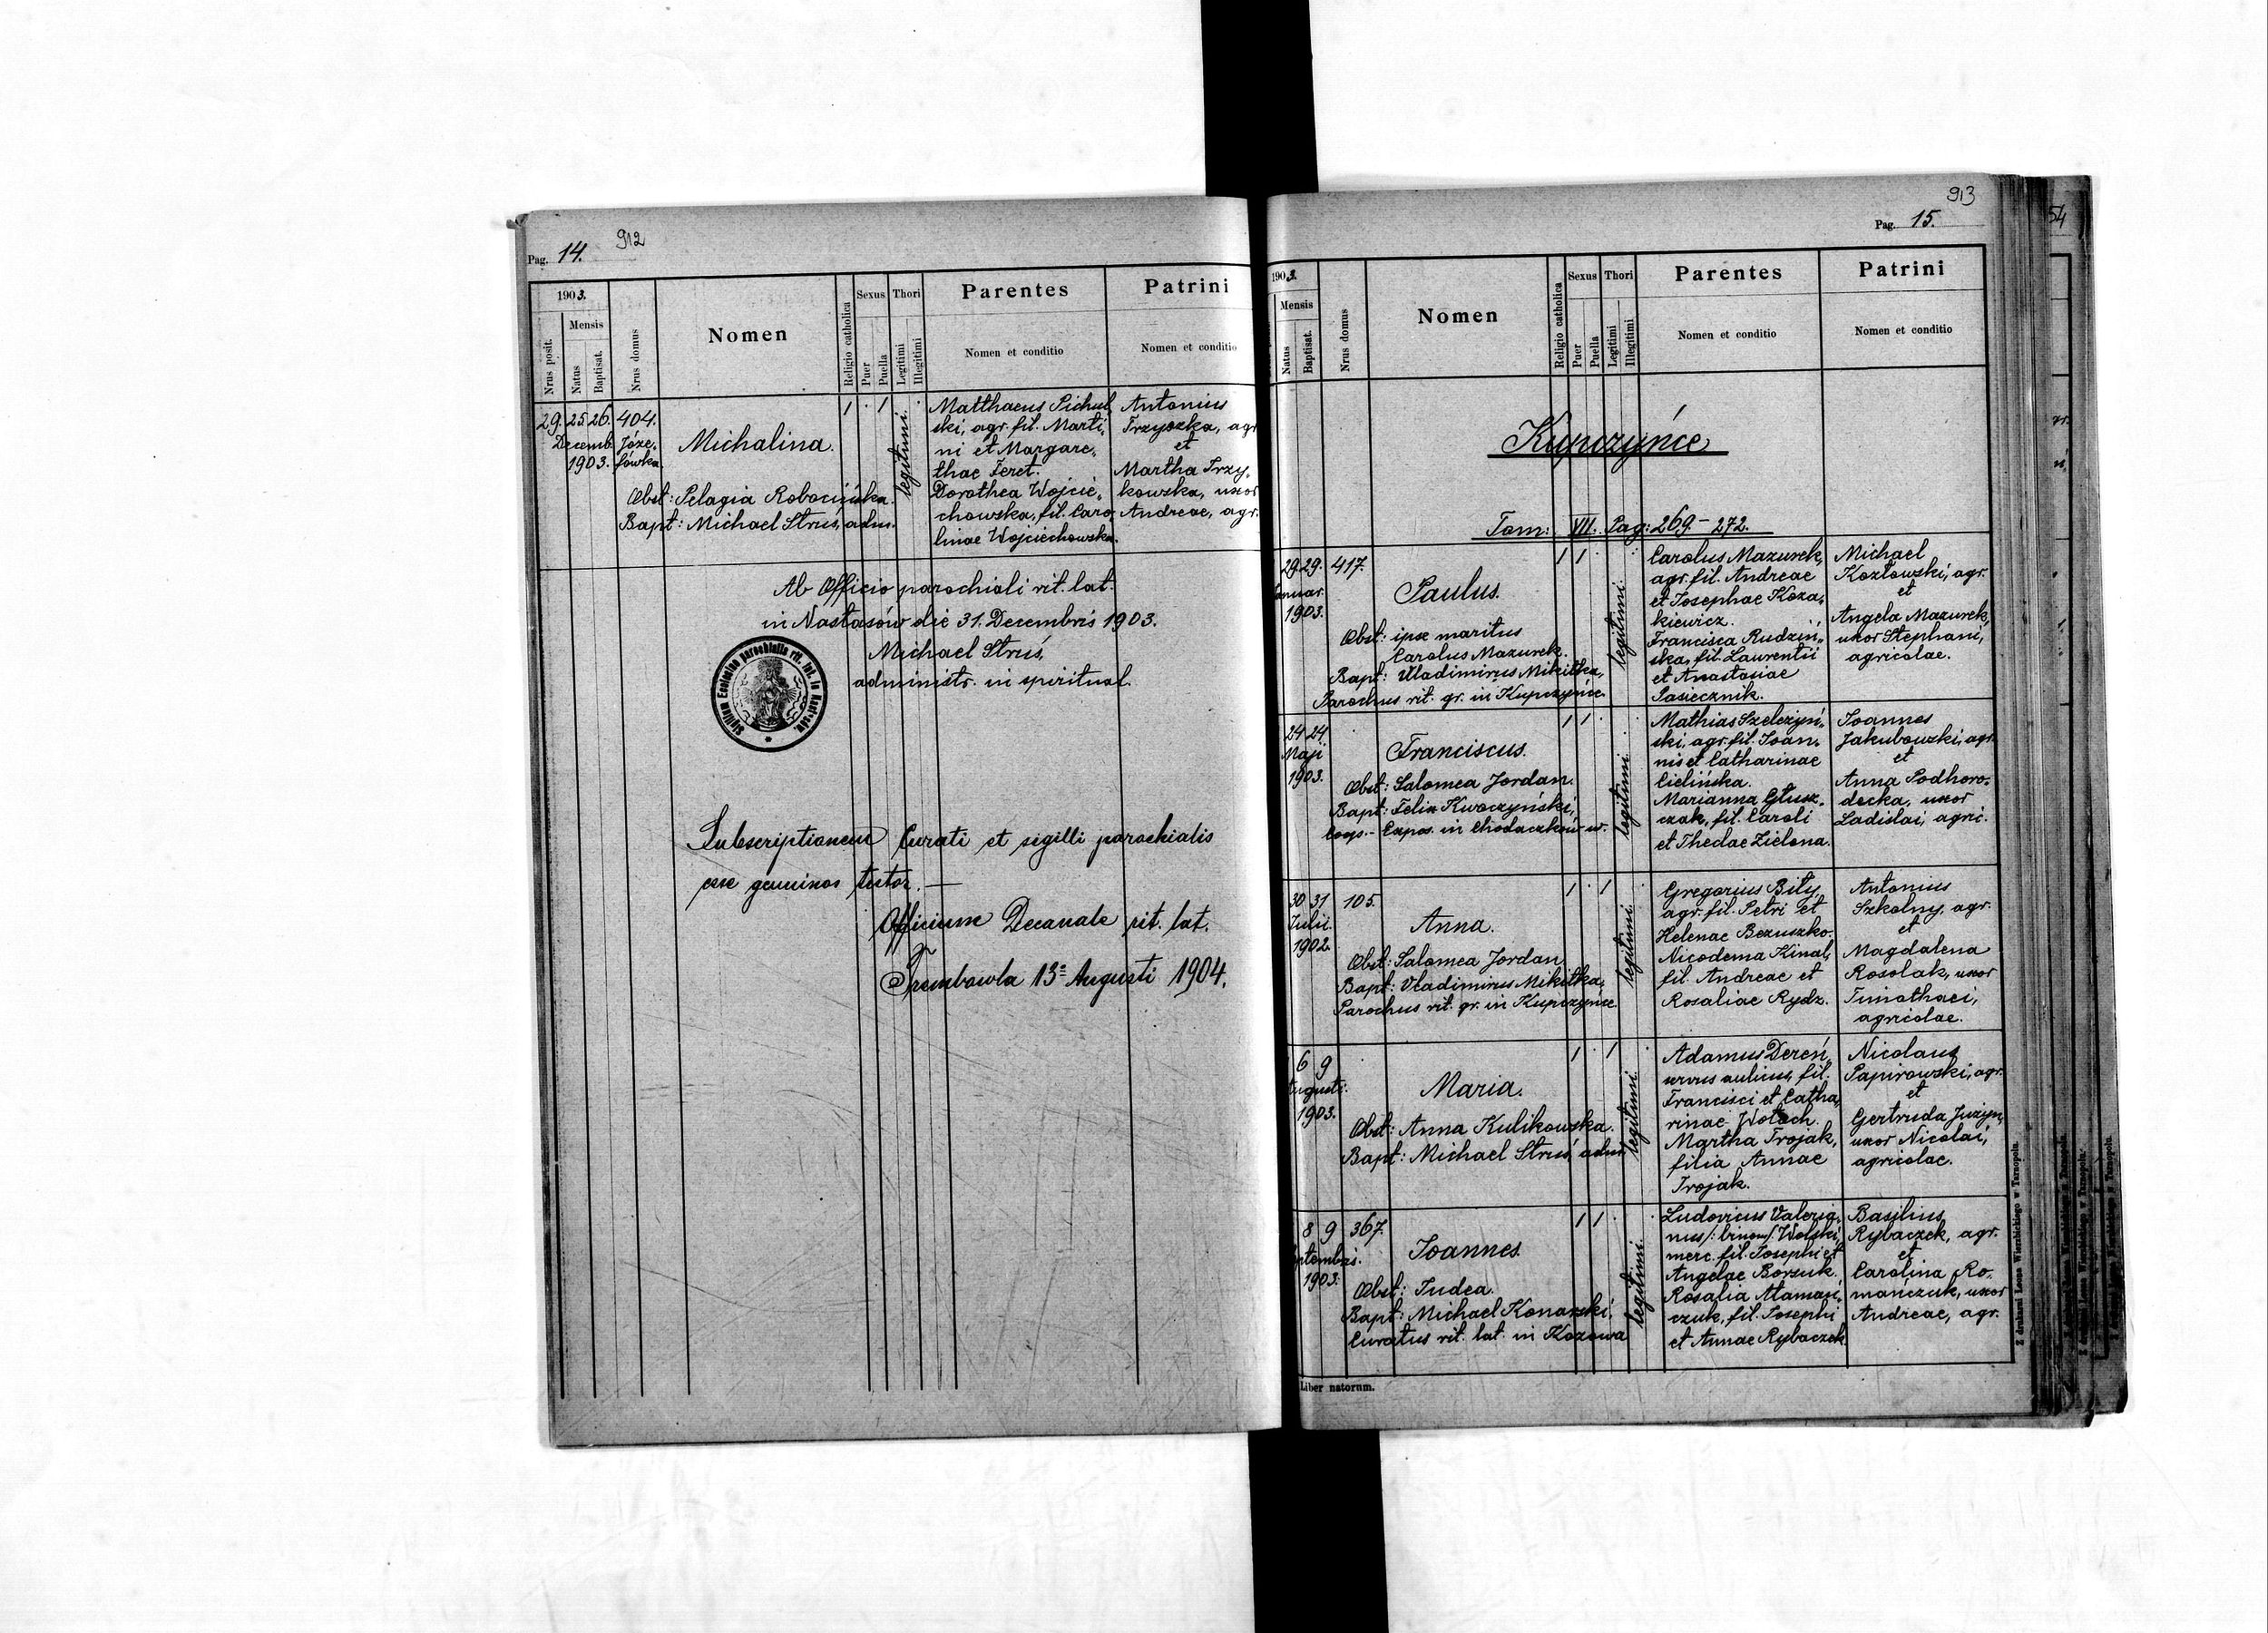 912
Pag. 14.
1903.
Nrus posit.
Mensis
Natus
Baptisat.
Nrus domus
Nomen
Religio catholica
Sexus
Puer
Puella
Thori
Legitimi
Illegitimi
Parentes
Nomen et conditio
Patrini
Nomen et conditio
29. 25. 26. 404.
Decemb. Józe„
1903. fówka
Michalina.
Obst: Pelagia Robocińska.
Bapt: Michael Struś, adm.
legitimi.
Matthaeus Pichul„
ski, agr. fil. Marti„
ni et Margare„
thae Feret.
Dorothea Wojcie„
chowska, fil. Caro„
linae Wojciechowska.
Antonius
Trzyszka, agr
et
Martha Trzy„
kowska, uxor
Andreae, agr.
Ab Officio parochiali rit. lat.
in Nastasów die 31. Decembris 1903.
Michael Struś,
administr. in spiritual.
Sigillum Ecclesiae parochialis rit. lat. in Nastasów.
Subscriptionem Curati et sigilli parochialis
esse genuinos testor. —
Officium Decanale rit. lat.
Trembowla 13ᵃ Augusti 1904.
913
Pag. 15.
1903.
Mensis
Natus
Baptisat.
Nrus domus
Nomen
Religio catholica
Sexus
Puer
Puella
Thori
Legitimi
Illegitimi
Parentes
Nomen et conditio
Patrini
Nomen et conditio
Kupczyńce
Tom: VII. Pag: 269 - 272.
29. 29. 417.
anuar.
1903.
Paulus.
Obst: ipse maritus
Carolus Mazurek.
Bapt: Vladimirus Mikitka,
Parochus rit. gr. in Kupczyńce.
legitimi.
Carolus Mazurek,
agr. fil. Andreae
et Josephae Koza„
kiewicz.
Francisca Rudziń„
ska, fil. Laurentii
et Anastasiae
Pasiecznik.
Michael
Kozłowski, agr.
et
Angela Mazurek,
uxor Stephani,
agricolae.
24 24
Maji
1903.
Franciscus.
Obst: Salomea Jordan.
Bapt: Felix Kwoczyński,
Coop.- Expos. in Chodaczków w.
legitimi.
Mathias Szelezyń„
ski, agr. fil. Joan„
nis et Catharinae
Cielińska.
Marianna Głusz„
czak, fil. Caroli
et Theclae Zielona.
Joannes
Jakubowski, agr.
et
Anna Podhoro„
decka, uxor
Ladislai, agric.
30 31 105.
Julii.
1902.
Anna.
Obst: Salomea Jordan
Bapt: Vladimirus Mikitka,
Parochus rit. gr. in Kupczyńce.
legitimi.
Gregorius Biły,
agr. fil. Petri et
Helenae Bezuszko.
Nicodema Kinal,
fil. Andreae et
Rosaliae Rydz.
Antonius
Szkolny, agr.
et
Magdalena
Rosolak, uxor
Timothaei,
agricolae.
6 9
ugusti.
1903.
Maria.
Obst: Anna Kulikowska.
Bapt: Michael Struś, adm.
legitimi.
Adamus Dereń,
aulicus, fil.
Francisci et Catha„
rinae Wołoch.
Martha Trojak,
filia Annae
Trojak.
Nicolaus
Papirowski, agr.
et
Gertruda
uxor Nicolai,
agricolae.
8 9 367.
ptembris.
1903.
Joannes.
Obst: Judea.
Bapt: Michael Konarski,
Curatus rit. lat. in Kozowa
legitimi.
Ludovicus Valeria„
nus /: binom /: Wolski,
merc. fil. Josephi et
Angelae Borsuk.
Rosalia Ataman„
czuk, fil. Josephi
et Annae Rybaczek.
Basilius
Rybaczek, agr.
et
Carolina Ro„
mańczuk, uxor
Andreae, agr.
Liber natorum.
Z drukarni Leona Wierzbickiego w Tarnopolu.
54